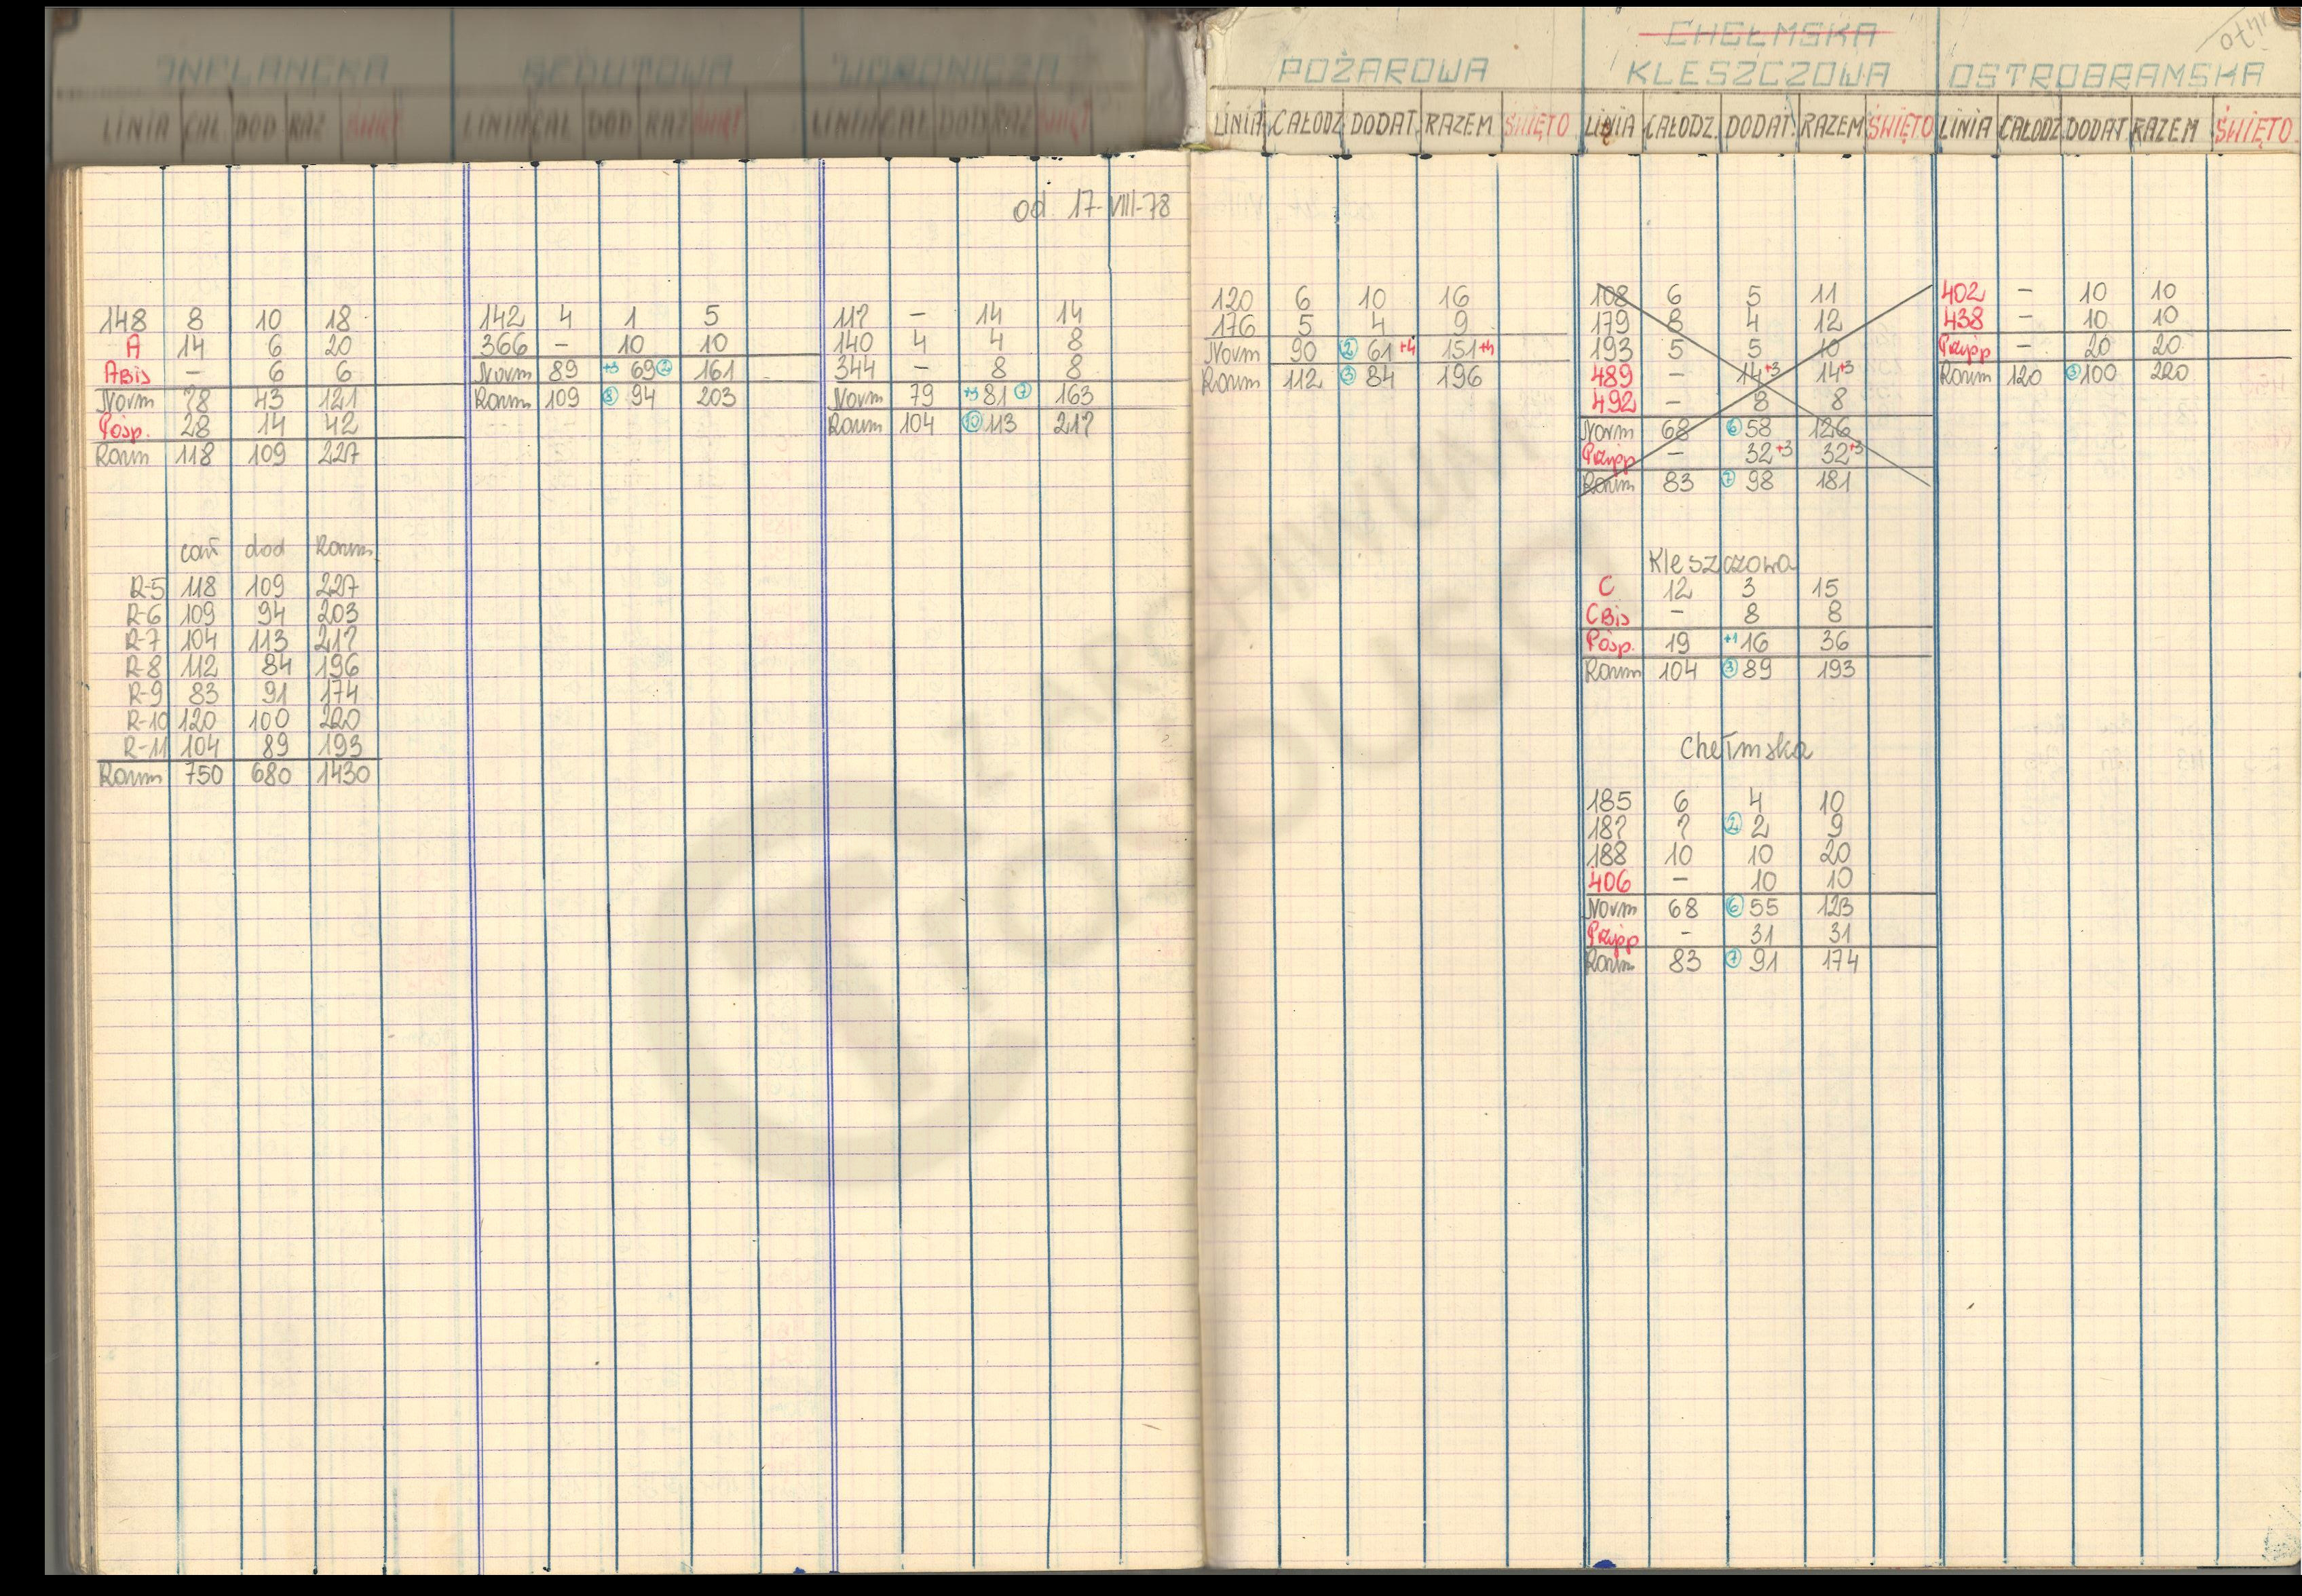 INFLANCKA REDUTOWA WORONICZA
LINIA CAŁ DOD RAZ ŚWIĘT LINIA CAŁ DOD RAZ ŚWIĘT LINIA CAŁ DOD RAZ ŚWIĘT
od 17-VIII-78
148 8 10 18
A 14 6 20
A Bis – 6 6
Norm 78 43 121
Pośp. 28 14 42
Razem 118 109 227
cał dod Razem
R-5 118 109 227
R-6 109 94 203
R-7 104 113 217
R-8 112 84 196
R-9 83 91 174
R-10 120 100 220
R-11 104 89 193
Razem 750 680 1430
142 4 1 5
366 – 10 10
Norm 89 +3 69 2 161
Razem 109 8 94 203
117 – 14 14
140 4 4 8
344 – 8 8
Norm 79 +3 81 7 163
Razem 104 10 113 217
POŻAROWA
LINIA CAŁODZ. DODAT. RAZEM ŚWIĘTO
120 6 10 16
176 5 4 9
Norm 90 2 61 +4 151 +4
Razem 112 3 84 196
CHEŁMSKA
KLESZCZOWA
LINIA CAŁODZ. DODAT. RAZEM ŚWIĘTO
108 6 5 11
179 8 4 12
193 5 5 10
489 – 14 +3 14 +3
492 – 8 8
Norm 68 6 58 126
Przysp – 32 +3 32 +3
Razem 83 7 98 181
Kleszczowa
C 12 3 15
C Bis – 8 8
Pośp. 19 +1 16 36
Razem 104 3 89 193
Chełmska
185 6 4 10
187 7 2 2 9
188 10 10 20
406 – 10 10
Norm 68 6 55 123
Przysp – 31 31
Razem 83 7 91 174
OSTROBRAMSKA
LINIA CAŁODZ. DODAT RAZEM ŚWIĘTO
402 – 10 10
438 – 10 10
Przysp – 20 20
Razem 120 3 100 220
Z ARCHIWUM